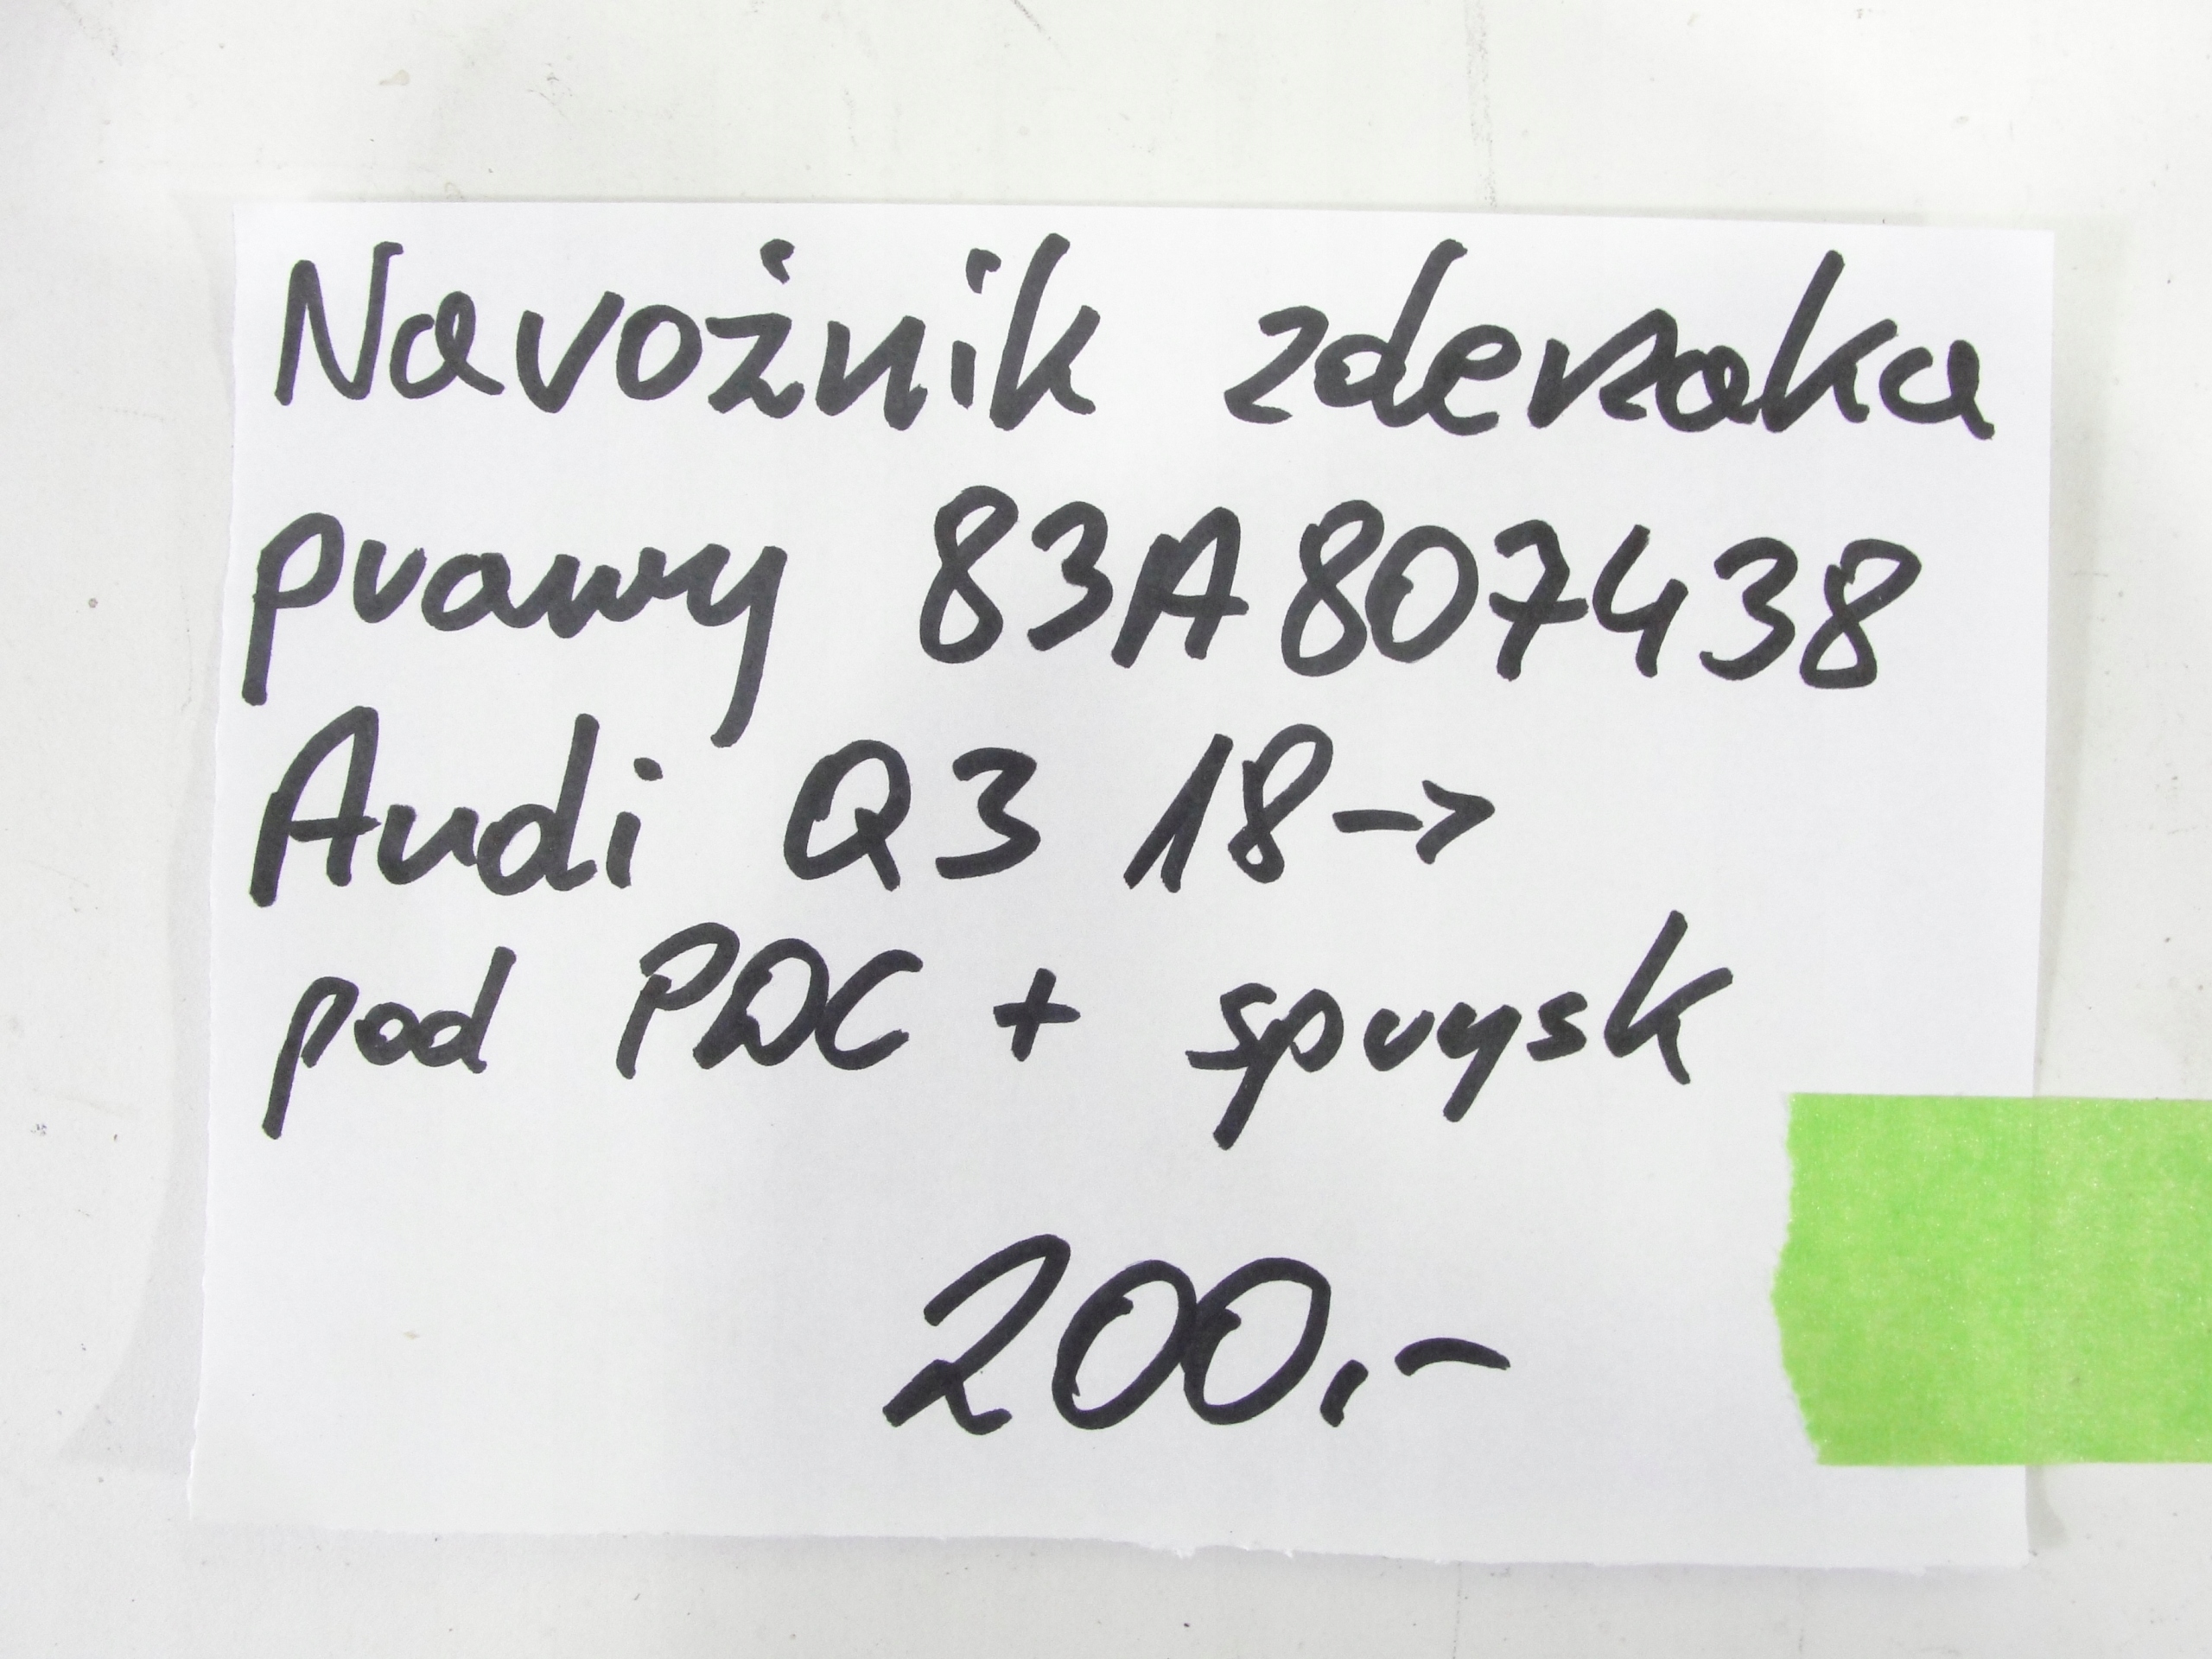 Narożnik zderzaka
prawy 83A807438
Audi Q3 18->
pod PDC + sprysk
200.-